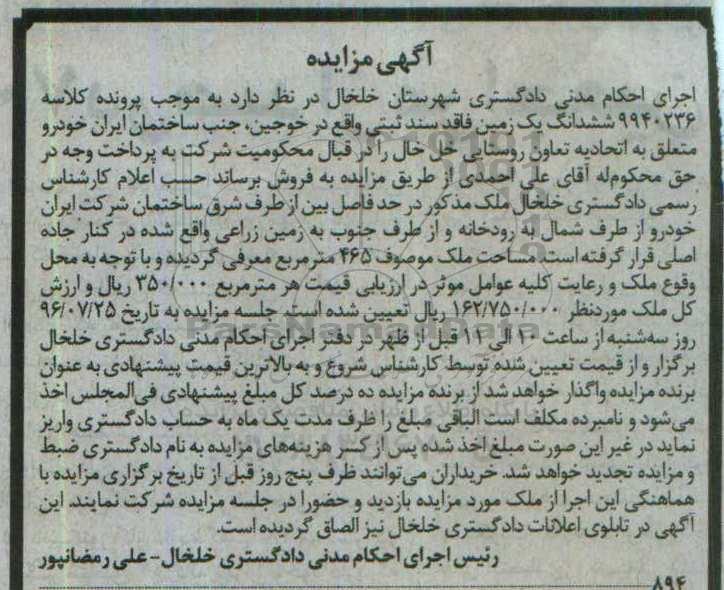 آگهی مزایده
اجرای احکام مدنی دادگستری شهرستان خلخال در نظر دارد به موجب پرونده کلاسه
۹۹۴۰۲۳۶ ششدانگ یک زمین فاقد سند ثبتی واقع در خوجین، جنب ساختمان ایران خودرو
متعلق به اتحادیه تعاون روستایی خلخال را در قبال محکومیت شرکت به پرداخت وجه در
حق محکوم‌له آقای علی احمدی از طریق مزایده به فروش برساند حسب اعلام کارشناس
رسمی دادگستری خلخال ملک مذکور در حد فاصل بین از طرف شرق ساختمان شرکت ایران
خودرو از طرف شمال به رودخانه و از طرف جنوب به زمین زراعی واقع شده در کنار جاده
اصلی قرار گرفته است. مساحت ملک موصوف ۴۶۵ مترمربع معرفی گردیده و با توجه به محل
وقوع ملک و رعایت کلیه عوامل موثر در ارزیابی قیمت هر مترمربع ۳۵۰/۰۰۰ ریال و ارزش
کل ملک موردنظر ۱۶۲/۷۵۰/۰۰۰ ریال تعیین شده است. جلسه مزایده به تاریخ ۹۶/۰۷/۲۵
روز سه‌شنبه از ساعت ۱۰ الی ۱۱ قبل از ظهر در دفتر اجرای احکام مدنی دادگستری خلخال
برگزار و از قیمت تعیین شده توسط کارشناس شروع و به بالاترین قیمت پیشنهادی به عنوان
برنده مزایده واگذار خواهد شد از برنده مزایده ده درصد کل مبلغ پیشنهادی فی‌المجلس اخذ
می‌شود و نامبرده مکلف است الباقی مبلغ را ظرف مدت یک ماه به حساب دادگستری واریز
نماید در غیر این صورت مبلغ اخذ شده پس از کسر هزینه‌های مزایده به نام دادگستری ضبط
و مزایده تجدید خواهد شد. خریداران می‌توانند ظرف پنج روز قبل از تاریخ برگزاری مزایده با
هماهنگی این اجرا از ملک مورد مزایده بازدید و حضورا در جلسه مزایده شرکت نمایند. این
آگهی در تابلوی اعلانات دادگستری خلخال نیز الصاق گردیده است.
رئیس اجرای احکام مدنی دادگستری خلخال - علی رمضانپور
۸۹۴
ParsNamadData